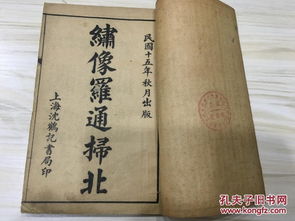 民國十五年秋月出版
繡像羅通掃北
上海沈鶴記書局印
孔夫子旧书网